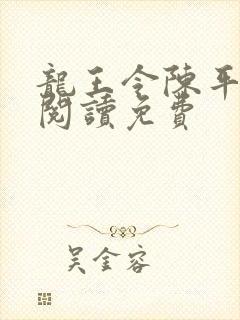 龍王令陳平
閱讀免費
吴金容